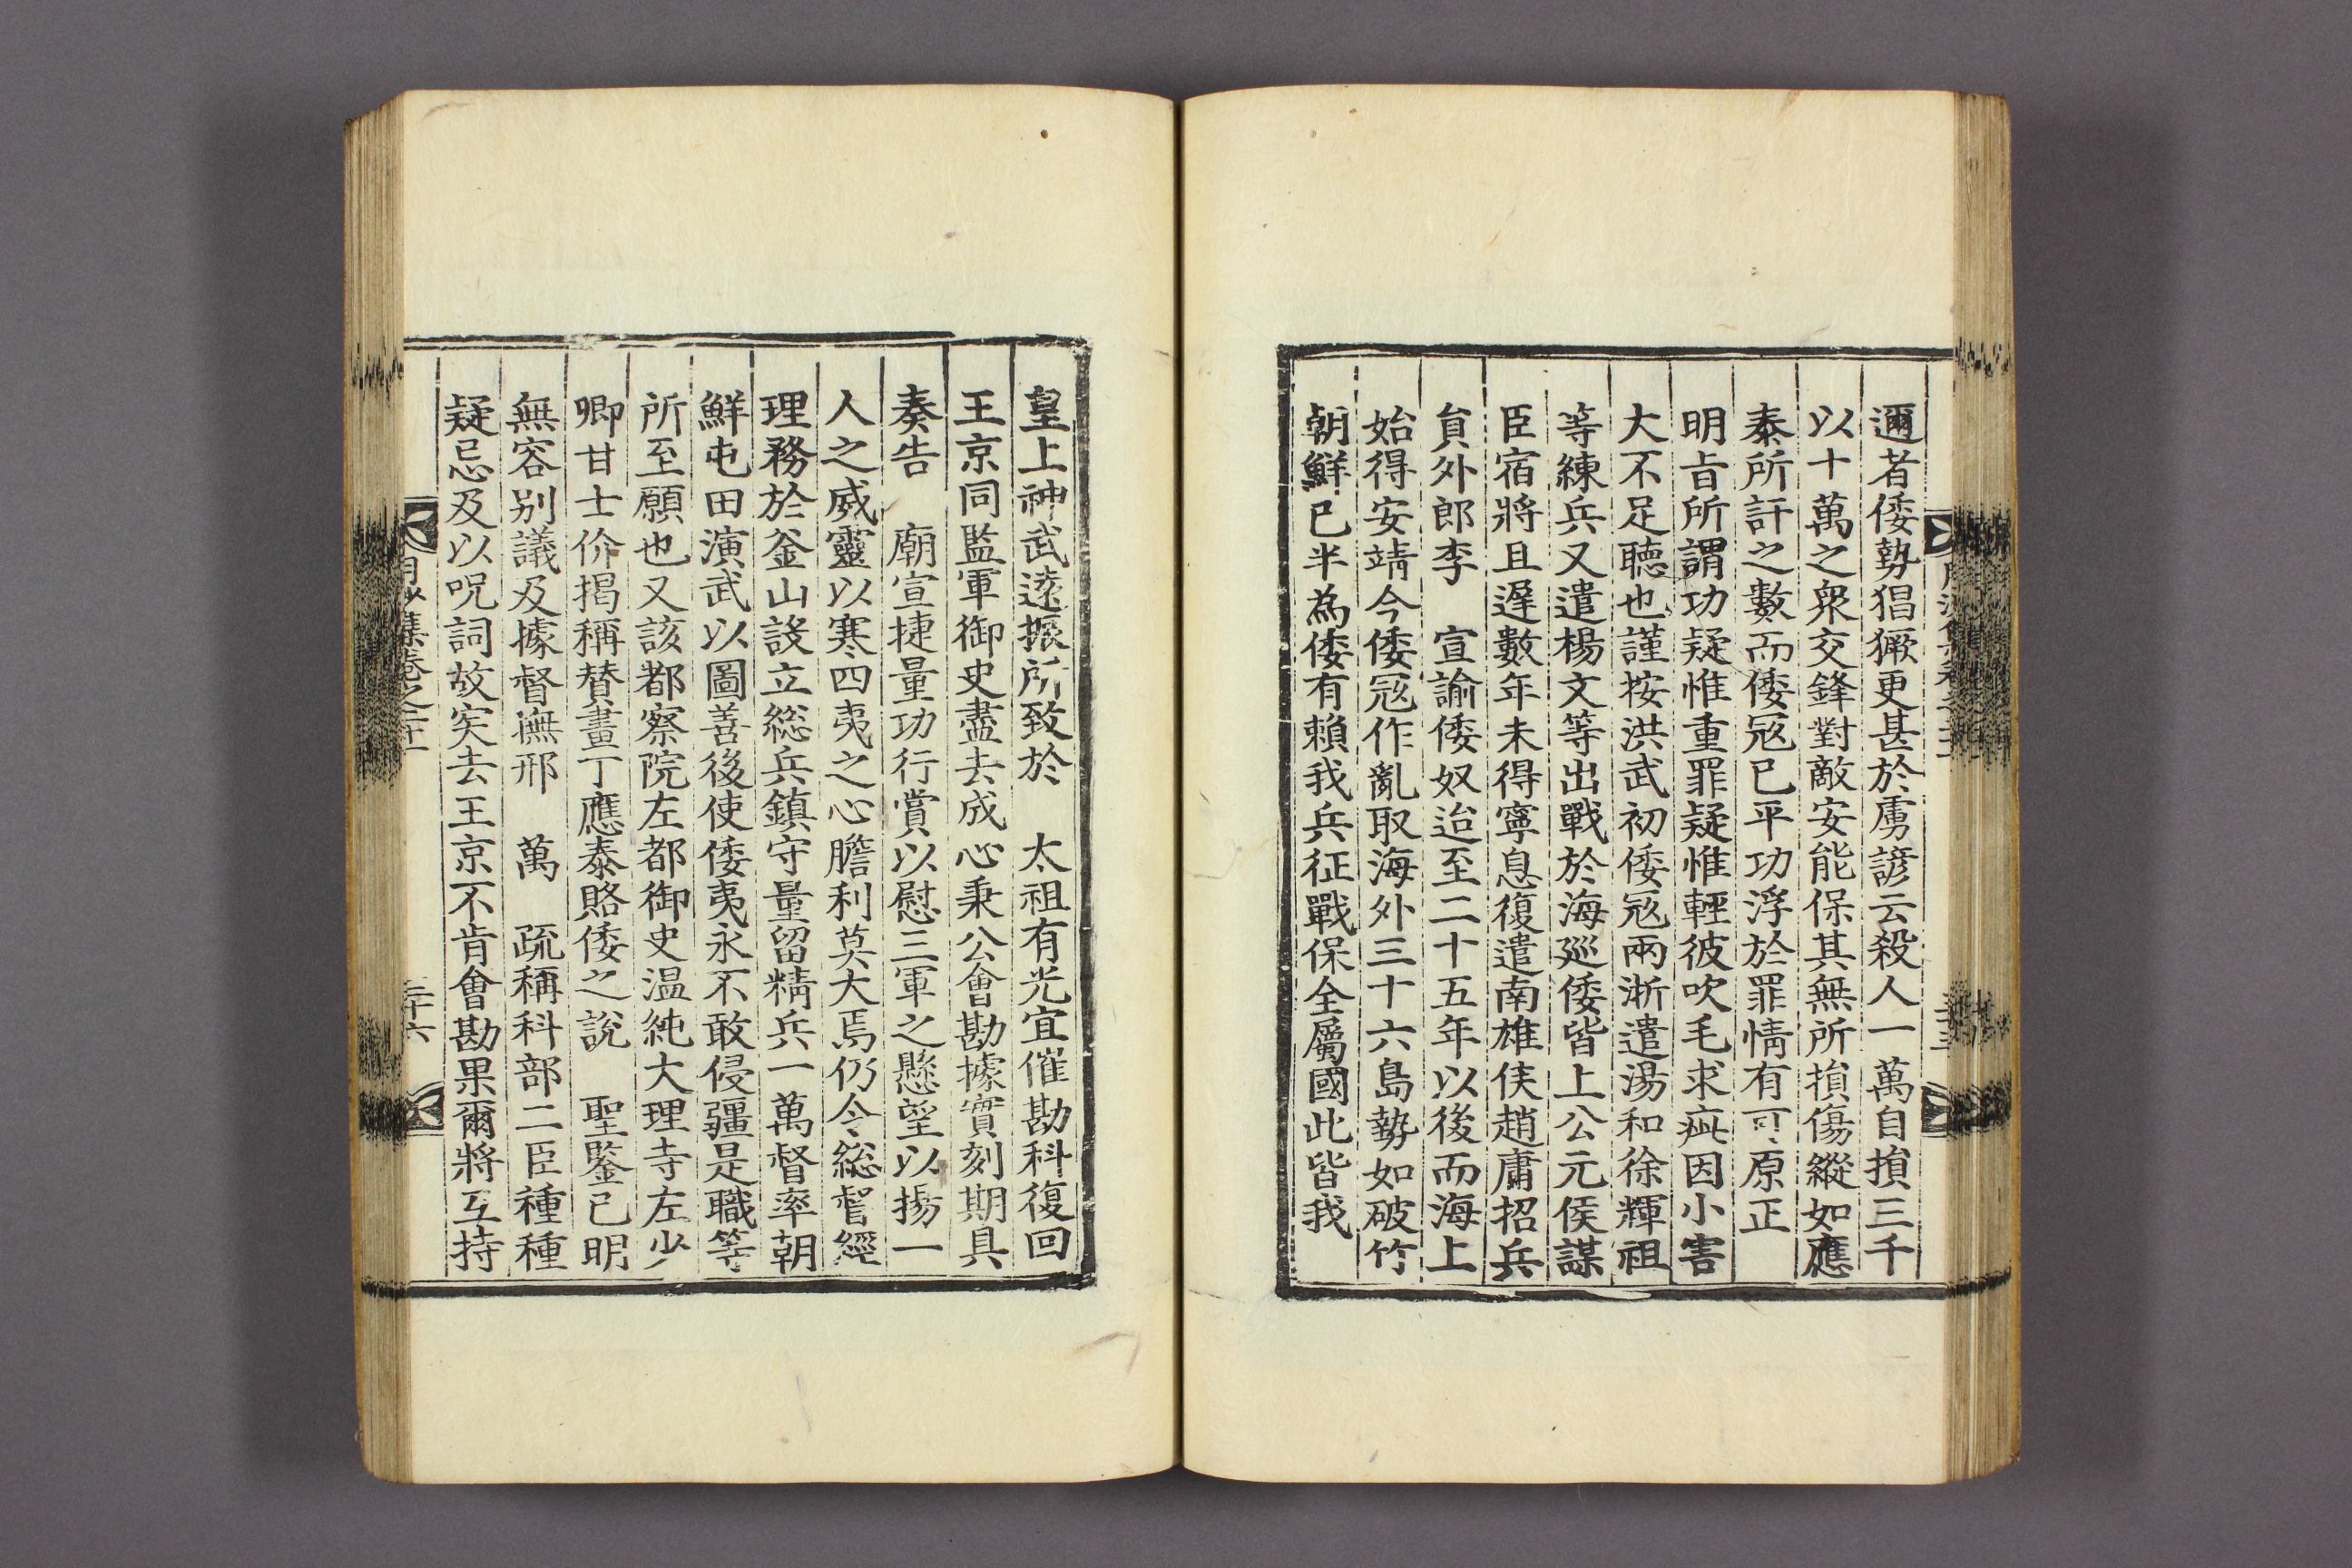 邇者倭勢猖獗更甚於虜諺云殺人一萬自損三千
以十萬之衆交鋒對敵安能保其無所損傷縱如應
泰所訐之數而倭冦已平功浮於罪情有可原正
明旨所謂功疑惟重罪疑惟輕彼吹毛求疵因小害
大不足聴也謹按洪武初倭冦兩浙遣湯和徐輝祖
等練兵又遣楊文等出戰於海廵倭皆上公元侯謀
臣宿將且遅數年未得寧息復遣南雄侯趙庸招兵
貟外郎李　宣諭倭奴迨至二十五年以後而海上
始得安靖今倭冦作亂取海外三十六島勢如破竹
朝鮮已半為倭有頼我兵征戰保全屬國此皆我
皇上神武遠振所致於　太祖有光宜催勘科復回
王京同監軍御史盡去成心秉公會勘據實刻期具
奏告　廟宣捷量功行賞以慰三軍之懸望以揚一
人之威靈以寒四夷之心膽利莫大焉仍令総督經
理務於釜山設立総兵鎮守量留精兵一萬督率朝
鮮屯田演武以圖善後使倭夷永不敢侵疆是職等
所至願也又該都察院左都御史温純大理寺左少
卿甘士价揭稱賛畫丁應泰賂倭之說　聖鑒已明
無容别議及據督撫邢　萬　疏稱科部二臣種種
疑忌及以呪詞故矣去王京不肯會勘果爾將互持
月沙集卷之二十一
三十六